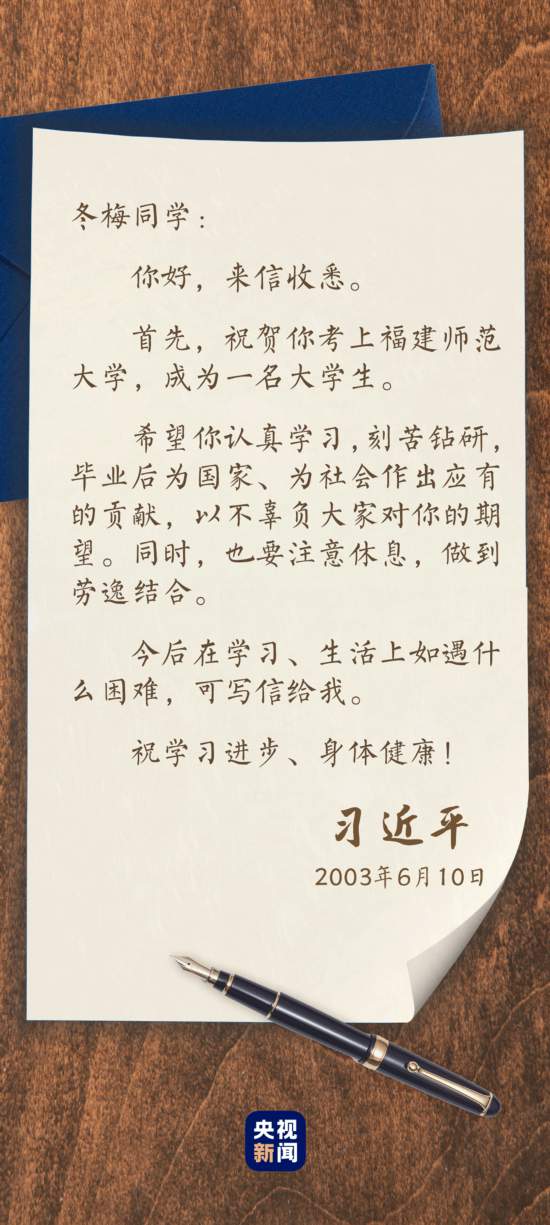 冬梅同学：
你好，来信收悉。
首先，祝贺你考上福建师范
大学，成为一名大学生。
希望你认真学习，刻苦钻研，
毕业后为国家、为社会作出应有
的贡献，以不辜负大家对你的期
望。同时，也要注意休息，做到
劳逸结合。
今后在学习、生活上如遇什
么困难，可写信给我。
祝学习进步、身体健康！
习近平
2003年6月10日
央视
新闻